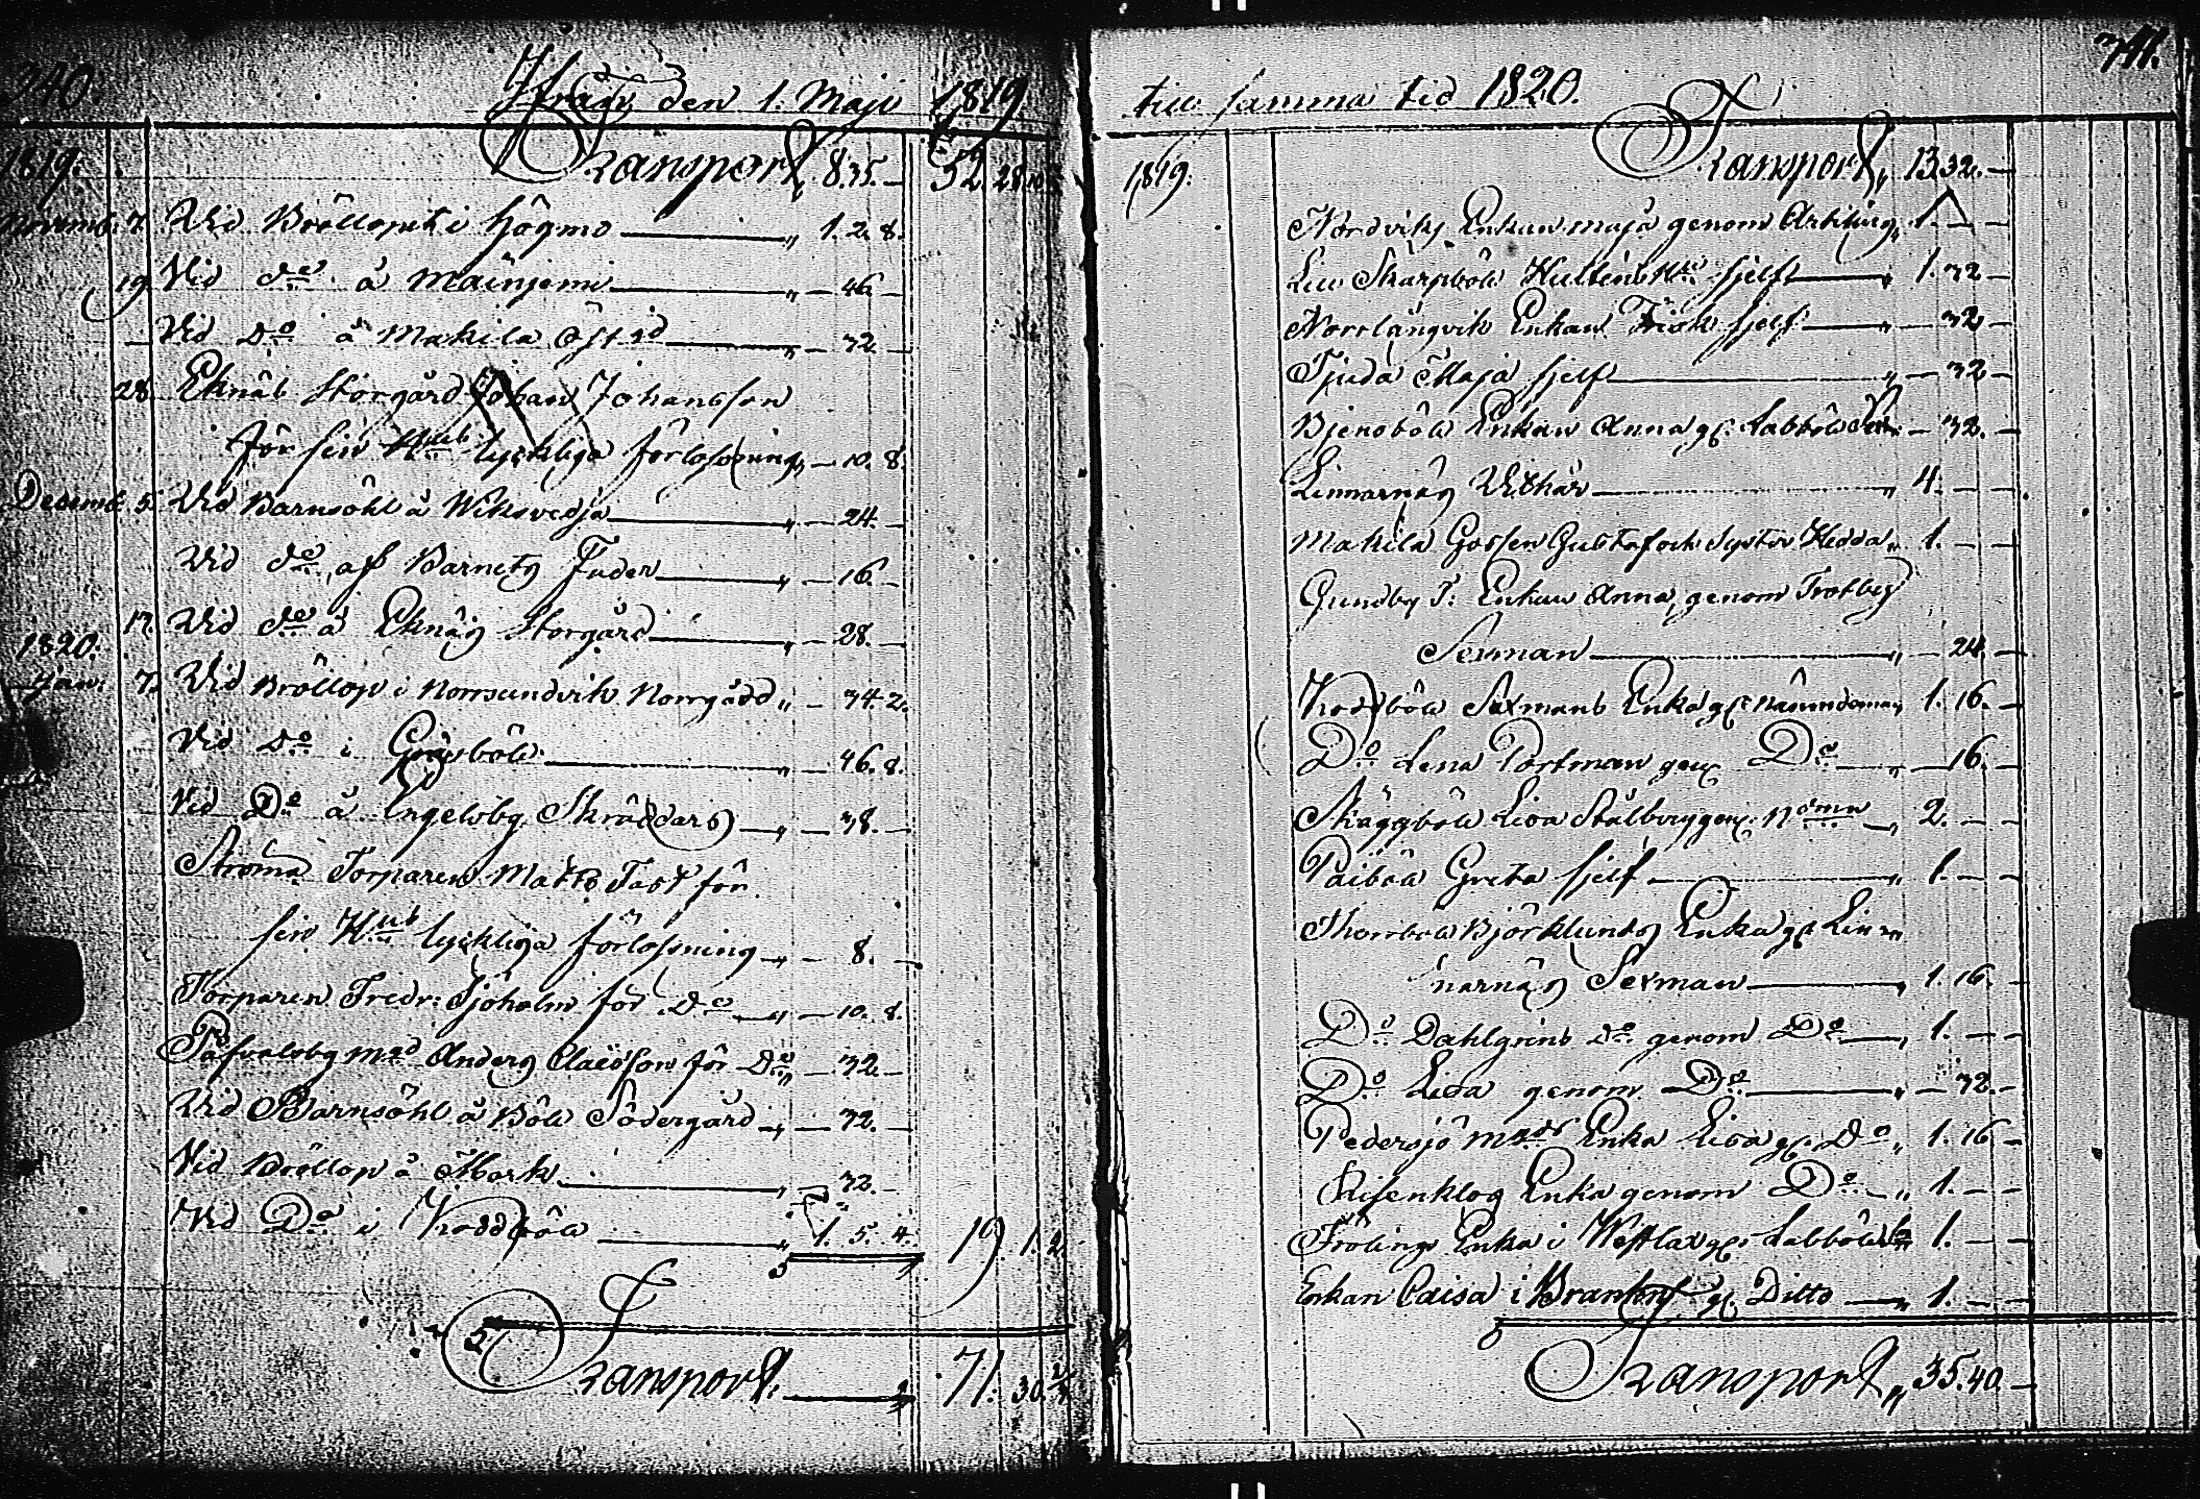 340.
Ifrån den 1. Maji 1819
1819. Transport „ 8.35.— 52. 28.10
Novemb: 7. Vid Bröllopet i Högmo — „ 1. 2. 8.
19. Vid do å Mainjemi — „ — 46. —
— Vid Do å Makila — „ — 32 —
28. Eknäs Storgård Johan Johansson
för sin Hus lyckliga förlossning „ — 10. 8.
Decemb: 5. Vid Barnsöhl å Wiksvedja — „ — 24. —
Vid do af Barnets Fader — „ — 16. —
17. Vid do å Eknäs Storgård — „ — 28. —
1820:
Jan: 7. Vid Bröllop i Norrsundvik Norrgård „ — 34. 2.
Vid Do i Gräsböle — „ — 46. 8.
Vid Do å Engelsby Skräddars — „ — 38. —
Ströma Torparen Matts Fast för
sin Hus lyckliga förlossning — „ — 8. —
Torparen Fredr: Sjöholm för Do — „ — 10. 8.
Påfvalsby Mad Anders Claësson för Do „ — 32. —
Vid Barnsöhl å Böle Södergård — „ — 32. —
Vid Bröllop å Mark — „ — 32. —
Vid Do i Kroddböle — „ 1. 5. 4. 19. 1. 2
Transport. — „ 71. 30. 2/3
341.
till samma tid 1820.
1819: Transport „ 13.32. —
Nordviks Enkan Maja genom „ 1. — —
Skarpböle Hulténs sjelf — „ 1. 32 —
Norrlångvik Enkan Frisk sjelf — „ — 32 —
Tjuda Maja sjelf — „ — 32 —
Bjensböle Enkan Anna gf. Labböle — 32. —
Linnarnäs Withär — „ 4. — —
Makila Gossen Gustaf och Syster Hedda „ 1. — —
Gundby T: Enkan Anna, genom Trotby
Sexman — „ — 24. —
Kroddböle Sexmans Enka gf. Nämndeman „ 1. 16. —
Do Lena Portman gen. Do — „ — 16. —
Skäggböle Lisa Stålberg gen. — „ 2. — —
Paiböle Greta sjelf — „ 1. — —
Björklunds Enka gf. Lin-
narnäs Sexman — „ 1. 16. —
Do Dahlgrens do genom Do — „ 1. — —
Do Lisa genom Do — „ — 32. —
Pedersjö Enka Lisa gf. Do „ 1. 16 —
Enka genom Do — „ 1. — —
Frölings Enka i Westlax gf. Labböle „ 1. — —
Enkan Caisa i gf. Ditto — „ 1. — —
Transport „ 35.40. —